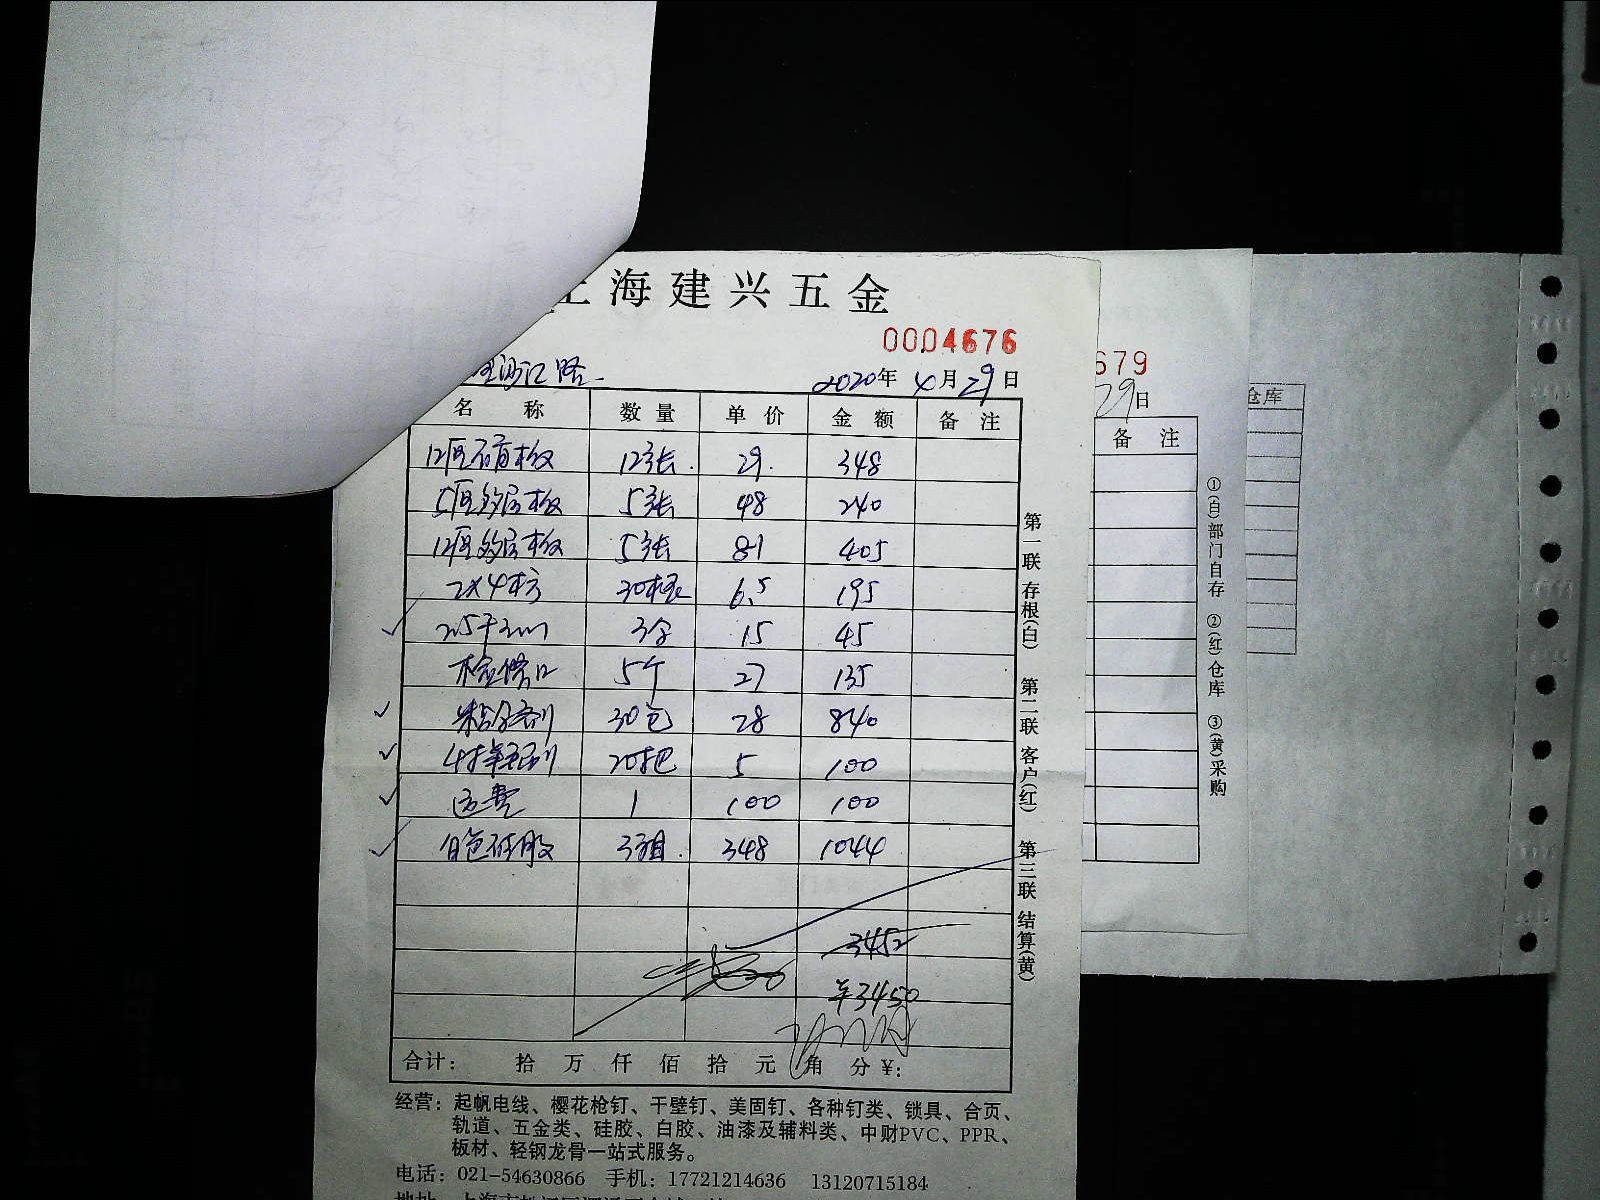 上海建兴五金
0004676
679
2020年 4月29日
29日
仓库
名 称 数 量 单 价 金 额 备 注
备 注
12厘石膏板 12张 29 348
5厘多层板 5张 48 240
12厘多层板 5张 81 405
2×4木方 30根 6.5 195
3盒 15 45
检修口 5个 27 135
粘结剂 30包 28 840
20把 5 100
运费 1 100 100
白色硅胶 3箱 348 1044
3452
¥3450
合计: 拾 万 仟 佰 拾 元 角 分 ¥:
第一联 存根(白) 第二联 客户(红) 第三联 结算(黄)
①(白)部门自存 ②(红)仓库 ③(黄)采购
经营: 起帆电线、樱花枪钉、干壁钉、美固钉、各种钉类、锁具、合页、
轨道、五金类、硅胶、白胶、油漆及辅料类、中财PVC、PPR、
板材、轻钢龙骨一站式服务。
电话: 021-54630866 手机: 17721214636 13120715184